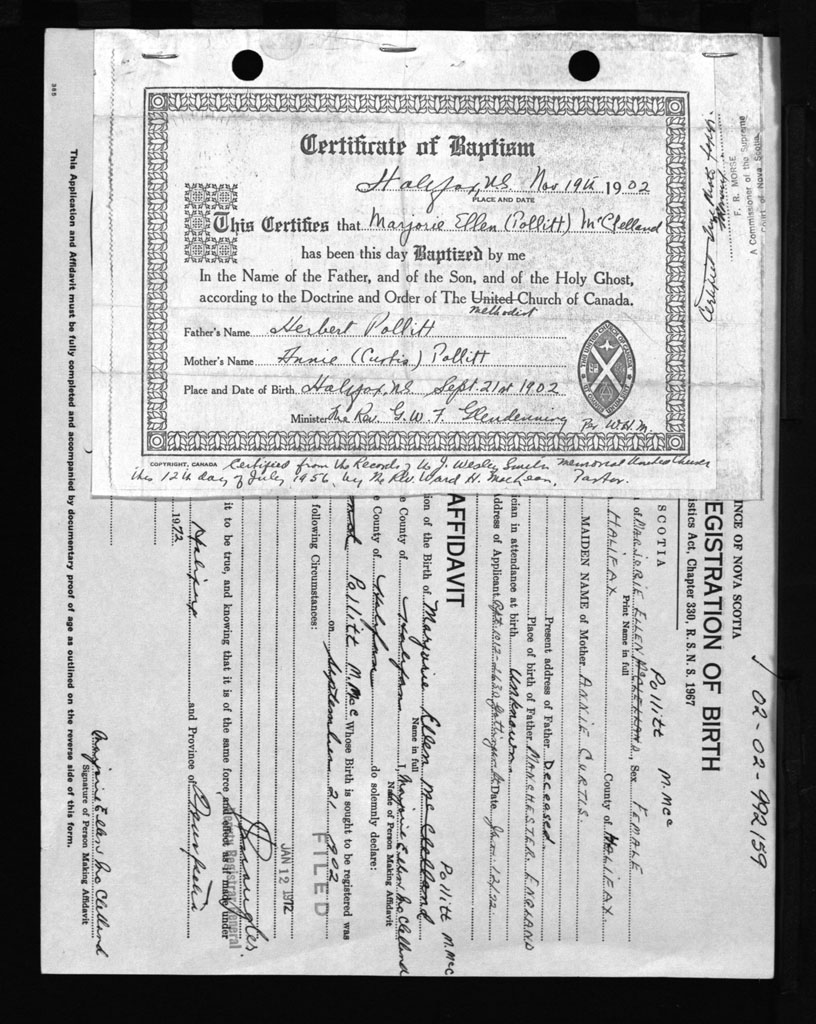 Certificate of Baptism
Halifax, NS Nov 19th 1902
PLACE AND DATE
This Certifies that Marjorie Ellen (Pollitt) McClelland
has been this day Baptized by me
In the Name of the Father, and of the Son, and of the Holy Ghost,
according to the Doctrine and Order of The United Church of Canada.
Methodist
Father's Name Herbert Pollitt
Mother's Name Annie (Curtis) Pollitt
Place and Date of Birth Halifax, NS Sept. 21st 1902
Minister The Rev. G. W. F. Glendenning
Per W.H.M.
COPYRIGHT, CANADA
Certified from the Records of the J. Wesley Smith Memorial United Church
this 12th day of July 1956 by the Rev. Ward H. MacLean, Pastor.
F. R. MORSE
A Commissioner of the Supreme
Court of Nova Scotia
02-02-992159
INCE OF NOVA SCOTIA
EGISTRATION OF BIRTH
istics Act, Chapter 330, R. S. N. S. 1967
SCOTIA
Pollitt M. McC
of MARJORIE ELLEN McCLELLAND, Sex FEMALE
Print Name in full
HALIFAX County of HALIFAX
MAIDEN NAME of Mother ANNIE CURTIS
Present address of Father Deceased
Place of birth of Father MANCHESTER, ENGLAND
ician in attendance at birth Unknown
address of Applicant Date
AFFIDAVIT
Pollitt M. McC
tion of the Birth of Marjorie Ellen McClelland
Name in full
e County of Halifax I, Marjorie Ellen McClelland
Name of Person Making Affidavit
e County of Halifax do solemnly declare:
Pollitt M. McC Whose Birth is sought to be registered was
on September 21 1902
e following Circumstances:
FILED
JAN 12 1972
Deputy Registrar General
it to be true, and knowing that it is of the same force and effect as if made under
Halifax and Province of
1972
Marjorie Ellen McClelland
Signature of Person Making Affidavit
This Application and Affidavit must be fully completed and accompanied by documentary proof of age as outlined on the reverse side of this form.
385